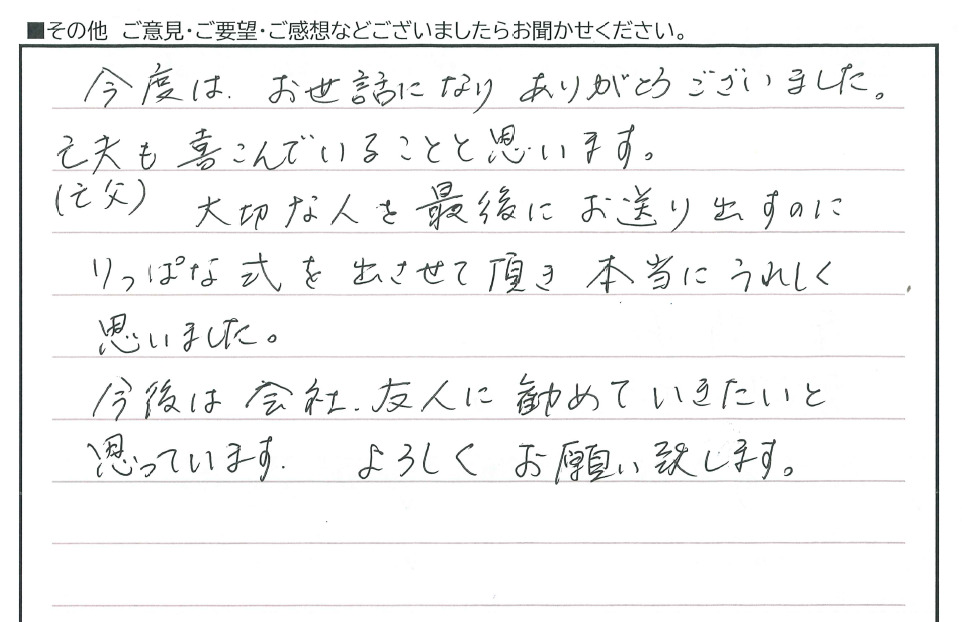 ■その他 ご意見・ご要望・ご感想などございましたらお聞かせください。
今度は、お世話になり ありがとうございました。
亡夫も 喜こんでいることと思います。
(亡父) 大切な人を最後にお送り出すのに
りっぱな式を出させて頂き 本当にうれしく
思いました。
今後は会社、友人に勧めていきたいと
思っています。 よろしく お願い致します。